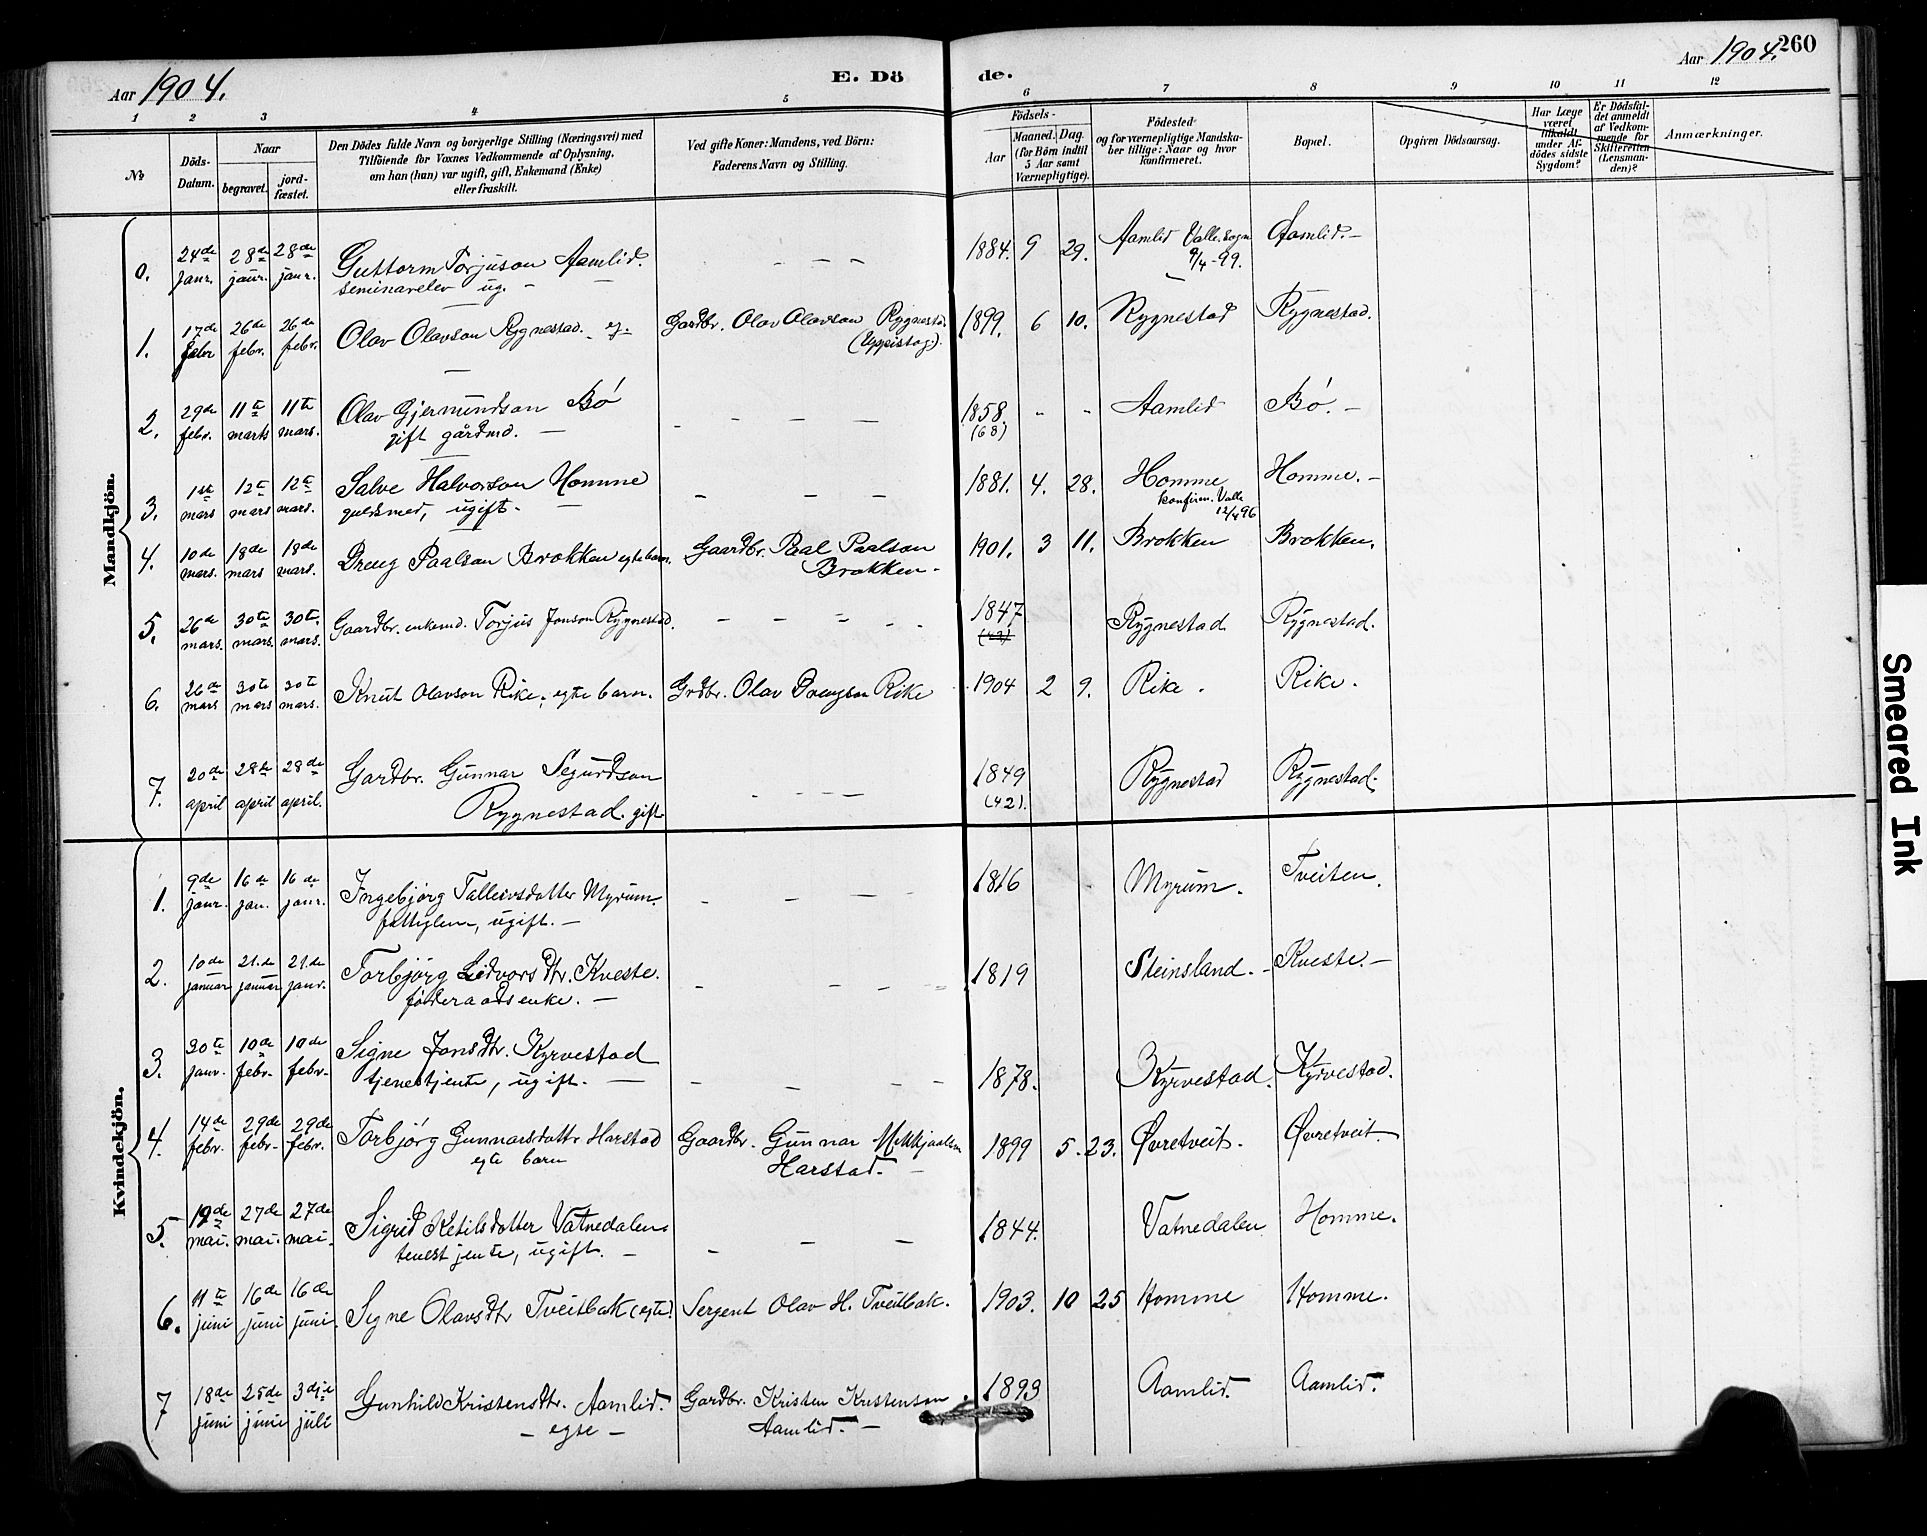 Aar 1904.
E. Døde.
Aar 1904.
260
1 2 3 4 5 6 7 8 9 10 11 12
No
Döds-Datum.
Naar
begravet.
jord-fæstet.
Den Dödes fulde Navn og borgerlige Stilling (Næringsvei) med
Tilföiende for Voxnes Vedkommende af Oplysning,
om han (hun) var ugift, gift, Enkemand (Enke)
eller fraskilt.
Ved gifte Koner: Mandens, ved Börn:
Faderens Navn og Stilling.
Födsels-
Aar
Maaned. Dag.
(for Börn indtil
5 Aar samt
Værnepligtige).
Födested
og for værnepligtige Mandska-
ber tillige: Naar og hvor
konfirmeret.
Bopæl.
Opgiven Dödsaarsag.
Har Læge
været
tilkaldt
under Af-
dödes sidste
Sygdom?
Er Dödsfal-
det anmeldt
af Vedkom-
mende for
Skifteretten
(Lensman-
den)?
Anmærkninger.
Mandkjön.
0. 24de janr. 28de janr. 28de janr. Guttorm Torjuson Aamlid. - - - 1884. 9 29. Aamlid Valle sogn Aamlid. -
seminarelev ug. - 9/4-99.
1. 17de febr 26de febr. 26de febr. Olav Olavson Rygnestad. eg. Gardbr. Olav Olavson Rygnestad 1899. 6 10. Rygnestad Rygnestad.
(Uppistog.).
2. 29de febr. 11te marts 11te mars. Olav Gjermundson Bö - - - - 1858. - - Aamlid Bö. -
gift gårdmd. - (68)
3. 1ste mars 12te mars 12te mars. Salve Halvorson Homme - - - 1881. 4. 28. Homme Homme. -
gulsmed, ugift. - konfirm. Valle
12/4 96
4. 10de mars. 18de mars 18de mars. Dreng Paalson Brokken egte barn. Gaardbr. Paal Paalson 1901. 3 11. Brokken Brokken.
Brokken -
5. 26de mars. 30te mars. 30te mars. Gaardbr. enkemd. Torjus Jonson Rygnestad. - - - - - 1847 Rygnestad Rygnestad.
6. 26de mars 30te mars 30te mars. Knut Olavson Rike, egte barn. Grdbr. Olav Drengson Rike 1904 2 9. Rike. Rike.
7. 20de april 28de april 28de april. Gardbr. Gunnar Sigurdson - - - - 1849 Rygnestad Rygnestad.
Rygnestad. gift. (42).
Kvindekjön.
1. 9de janr. 16de jan. 16de janr. Ingebjørg Talleivsdatter Myrum. - - - - 1816 Myrum. Tveiten.
fattiglem, ugift. -
2. 10de januar 21.de januar 21.de janr. Torbjørg Lidvorsdtr. Kveste. - - - - 1819 Steinsland. - Kveste. -
føderaadsenke. -
3. 30te janr. 10de febr. 10de febr. Signe Jonsdtr. Kyrvestad - - - - 1878. Kyrvestad. Kyrvestad.
tjenestjente, ugift. -
4. 14de febr. 29de febr. 29de febr. Torbjörg Gunnarsdottr Harstad Gaardbr. Gunnar Mikkjaalson 1899 5. 23. Øvretveit. Øvretveit.
egte barn Harstad. -
5. 19de mai. 27de mai. 27de mai. Sigrid Ketilsdatter Vatnedalen - - - 1844. Vatnedalen Homme.
tenestjente, ugift. -
6. 11te juni 16de juni 16de juni Signe Olavsdtr Tveitbak (egte) Sergent Olav H. Tveitbak. 1903. 10 25 Homme Homme.
7 18de juni 25de juni 3dje juli Gunhild Kristensdtr. Aamlid. Gardbr. Kristen Kristenson 1893 Aamlid. Aamlid.
- egte - Aamlid. -
Smeared Ink